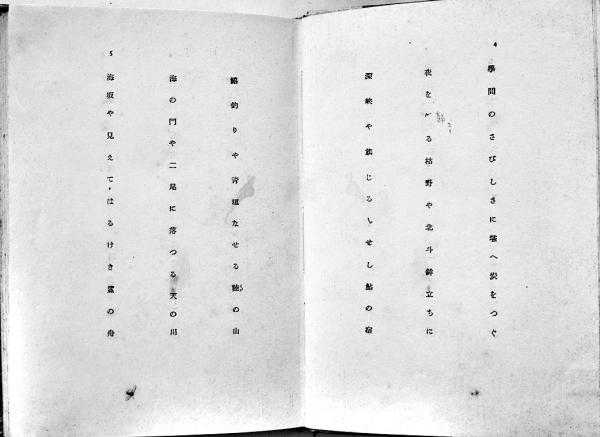 4
學問のさびしさに堪へ炭をつぐ
夜を る枯野や北斗鉾立ちに
深峽や旗じるしせし鮎の宿
鱚釣りや靑垣なせる陸の山
海の門や二尾に落つる天の川
5
海坂や見えてはるけき の舟